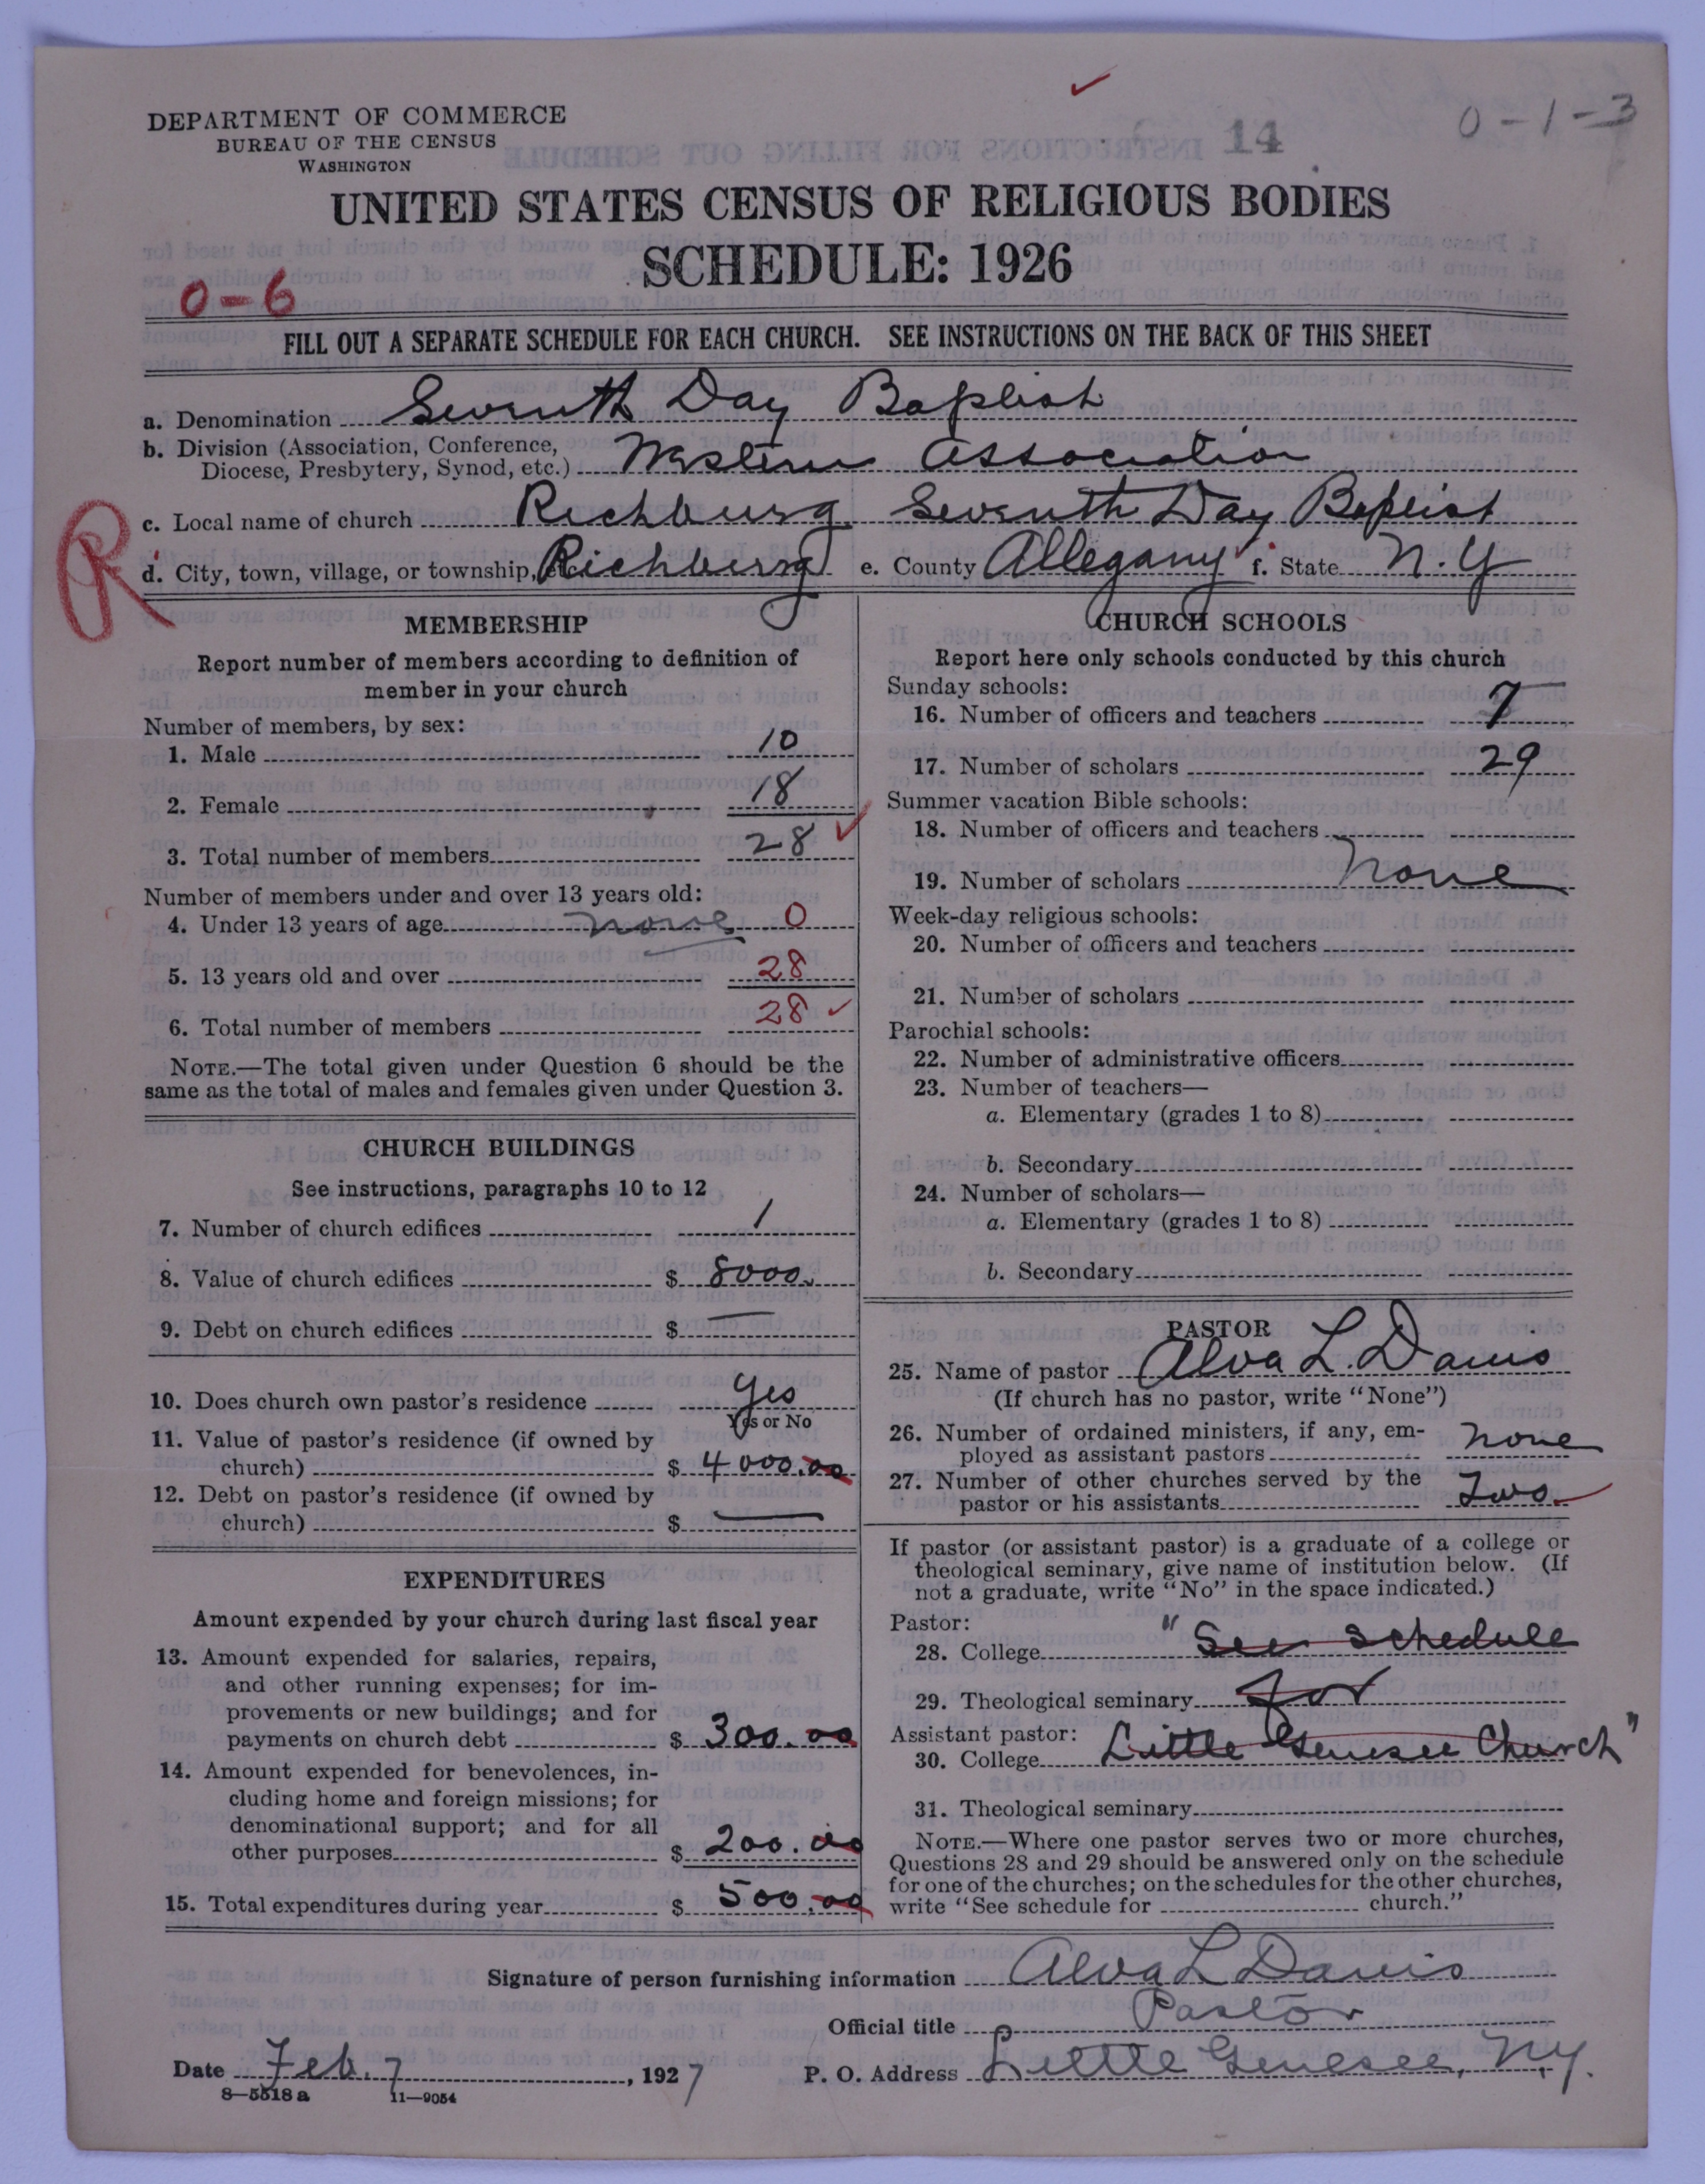 0-1-3
14
DEPARTMENT OF COMMERCE
BUREAU OF THE CENSUS
WASHINGTON
UNITED STATES CENSUS OF RELIGIOUS BODIES
SCHEDULE: 1926
0-6
FILL OUT A SEPARATE SCHEDULE FOR EACH CHURCH. SEE INSTRUCTIONS ON THE BACK OF THIS SHEET
a. Denomination Seventh Day Baptist
b. Division (Association, Conference,
Diocese, Presbytery, Synod, etc.) Western Association
R
c. Local name of church Richburg Seventh Day Baptist
d. City, town, village, or township, etc. Richburg e. County Allegany f. State N.Y
MEMBERSHIP
Report number of members according to definition of
member in your church
Number of members, by sex:
1. Male 10
2. Female 18
3. Total number of members 28 ✓
Number of members under and over 13 years old:
4. Under 13 years of age none 0
5. 13 years old and over 28
6. Total number of members 28 ✓
NOTE.—The total given under Question 6 should be the
same as the total of males and females given under Question 3.
CHURCH BUILDINGS
See instructions, paragraphs 10 to 12
7. Number of church edifices 1
8. Value of church edifices $ 8000.
9. Debt on church edifices $ —
10. Does church own pastor's residence Yes
Yes or No
11. Value of pastor's residence (if owned by
church) $ 4000.00
12. Debt on pastor's residence (if owned by
church) $ —
EXPENDITURES
Amount expended by your church during last fiscal year
13. Amount expended for salaries, repairs,
and other running expenses; for im-
provements or new buildings; and for
payments on church debt $ 300.00
14. Amount expended for benevolences, in-
cluding home and foreign missions; for
denominational support; and for all
other purposes $ 200.00
15. Total expenditures during year $ 500.00
CHURCH SCHOOLS
Report here only schools conducted by this church
Sunday schools:
16. Number of officers and teachers 7
17. Number of scholars 29
Summer vacation Bible schools:
18. Number of officers and teachers
19. Number of scholars None
Week-day religious schools:
20. Number of officers and teachers
21. Number of scholars
Parochial schools:
22. Number of administrative officers
23. Number of teachers—
a. Elementary (grades 1 to 8)
b. Secondary
24. Number of scholars—
a. Elementary (grades 1 to 8)
b. Secondary
PASTOR
25. Name of pastor Alva L. Davis
(If church has no pastor, write "None")
26. Number of ordained ministers, if any, em-
ployed as assistant pastors none
27. Number of other churches served by the
pastor or his assistants Two
If pastor (or assistant pastor) is a graduate of a college or
theological seminary, give name of institution below. (If
not a graduate, write "No" in the space indicated.)
Pastor:
28. College "See schedule
29. Theological seminary for
Assistant pastor:
30. College Little Genesee Church"
31. Theological seminary
NOTE.—Where one pastor serves two or more churches,
Questions 28 and 29 should be answered only on the schedule
for one of the churches; on the schedules for the other churches,
write "See schedule for church."
Signature of person furnishing information Alva L Davis
Official title Pastor
Date Feb. 7, 1927 P. O. Address Little Genesee, N.Y.
8—5518 a 11—9054